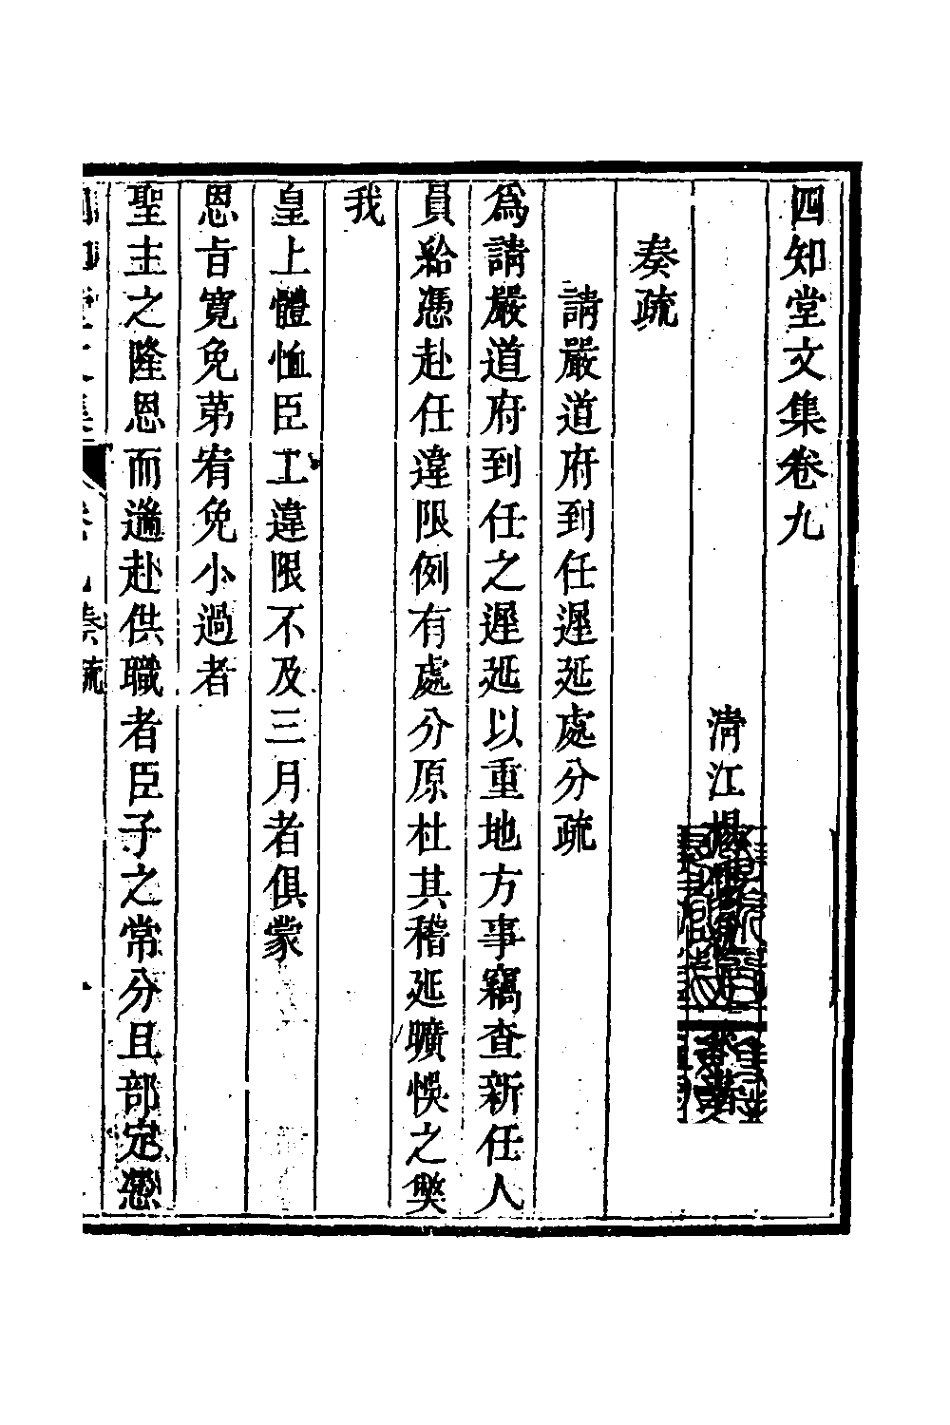 四知堂文集卷九
清江楊
奏疏
請嚴道府到任遲延處分疏
爲請嚴道府到任之遲延以重地方事竊查新任人
員給憑赴任違限例有處分原杜其稽延曠悞之獘
我
皇上體恤臣工違限不及三月者俱蒙
恩旨寬免苐宥免小過者
聖主之隆恩而遄赴供職者臣子之常分且部定憑